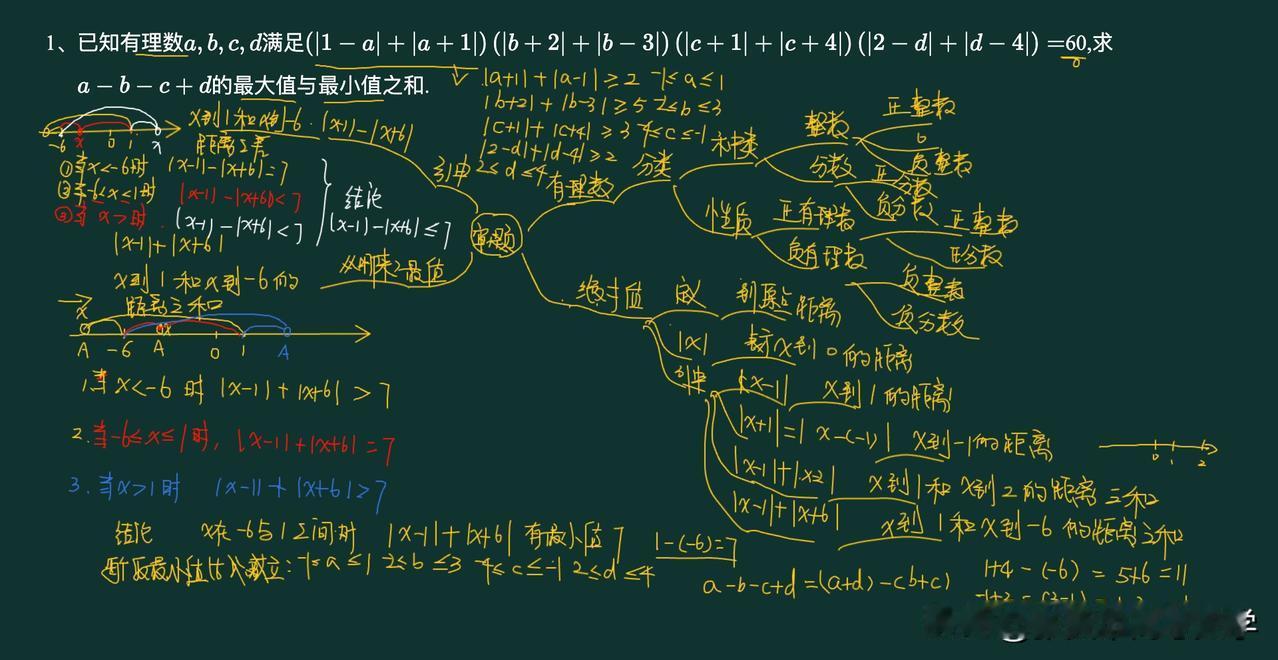 1、已知有理数a,b,c,d满足(|1−a|+|a+1|)(|b+2|+|b−3|)(|c+1|+|c+4|)(|2−d|+|d−4|)=60,求
a−b−c+d的最大值与最小值之和.
|a+1|+|a-1|≥2 -1≤a≤1
|b+2|+|b-3|≥5 -2≤b≤3
|c+1|+|c+4|≥3 -4≤c≤-1
|2-d|+|d-4|≥2
2≤d≤4
x到1和x到-6
距离之差
|x-1|-|x+6|
-6 x 0 1 x
①当x<-6时 |x-1|-|x+6|=7
②当-6≤x≤1时 |x-1|-|x+6|<7
③当x>1时 |x-1|-|x+6|<7
结论
|x-1|-|x+6|≤7
引申
|x-1|+|x+6|
x到1和x到-6的
距离之和
从哪来?最值
审题
x
A -6 A 0 1 A
1.当x<-6时 |x-1|+|x+6|>7
2.当-6≤x≤1时, |x-1|+|x+6|=7
3.当x>1时 |x-1|+|x+6|>7
结论 x在-6与1之间时 |x-1|+|x+6|有最小值7
1-(-6)=7
-1≤a≤1 -2≤b≤3 -4≤c≤-1 2≤d≤4
有理数
分类
种类
整数
正整数
0
负整数
分数
正分数
负分数
性质
正有理数
正整数
正分数
负有理数
负整数
负分数
绝对值
定义
到原点距离
|x|
表示x到0的距离
引申
|x-1|
x到1的距离
|x+1|=|x-(-1)|
x到-1的距离
0 1 2
|x-1|+|x-2|
x到1和x到2的距离之和
|x-1|+|x+6|
x到1和x到-6的距离之和
a-b-c+d=(a+d)-(b+c)
1+4-(-6)=5+6=11